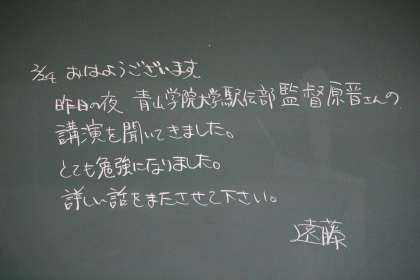 2/24 おはようございます
昨日の夜 青山学院大学駅伝部監督原晋さんの
講演を聞いてきました。
とても勉強になりました。
詳しい話をまたさせて下さい。
遠藤